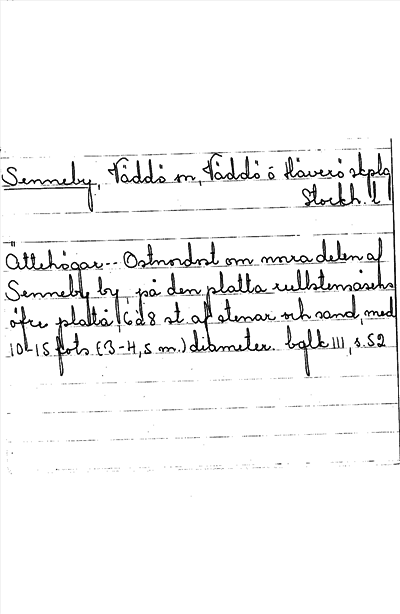 Senneby, Väddö sn, Väddö o Häverö skplg
Stockh. l
Ättehögar -- Ostnordost om norra delen af
Senneby by, på den platta rullstensåsens
öfre platå, 6 à 8 st. af stenar och sand, med
10-15 fots (3-4,5 m.) diameter. bglk III, s. 52